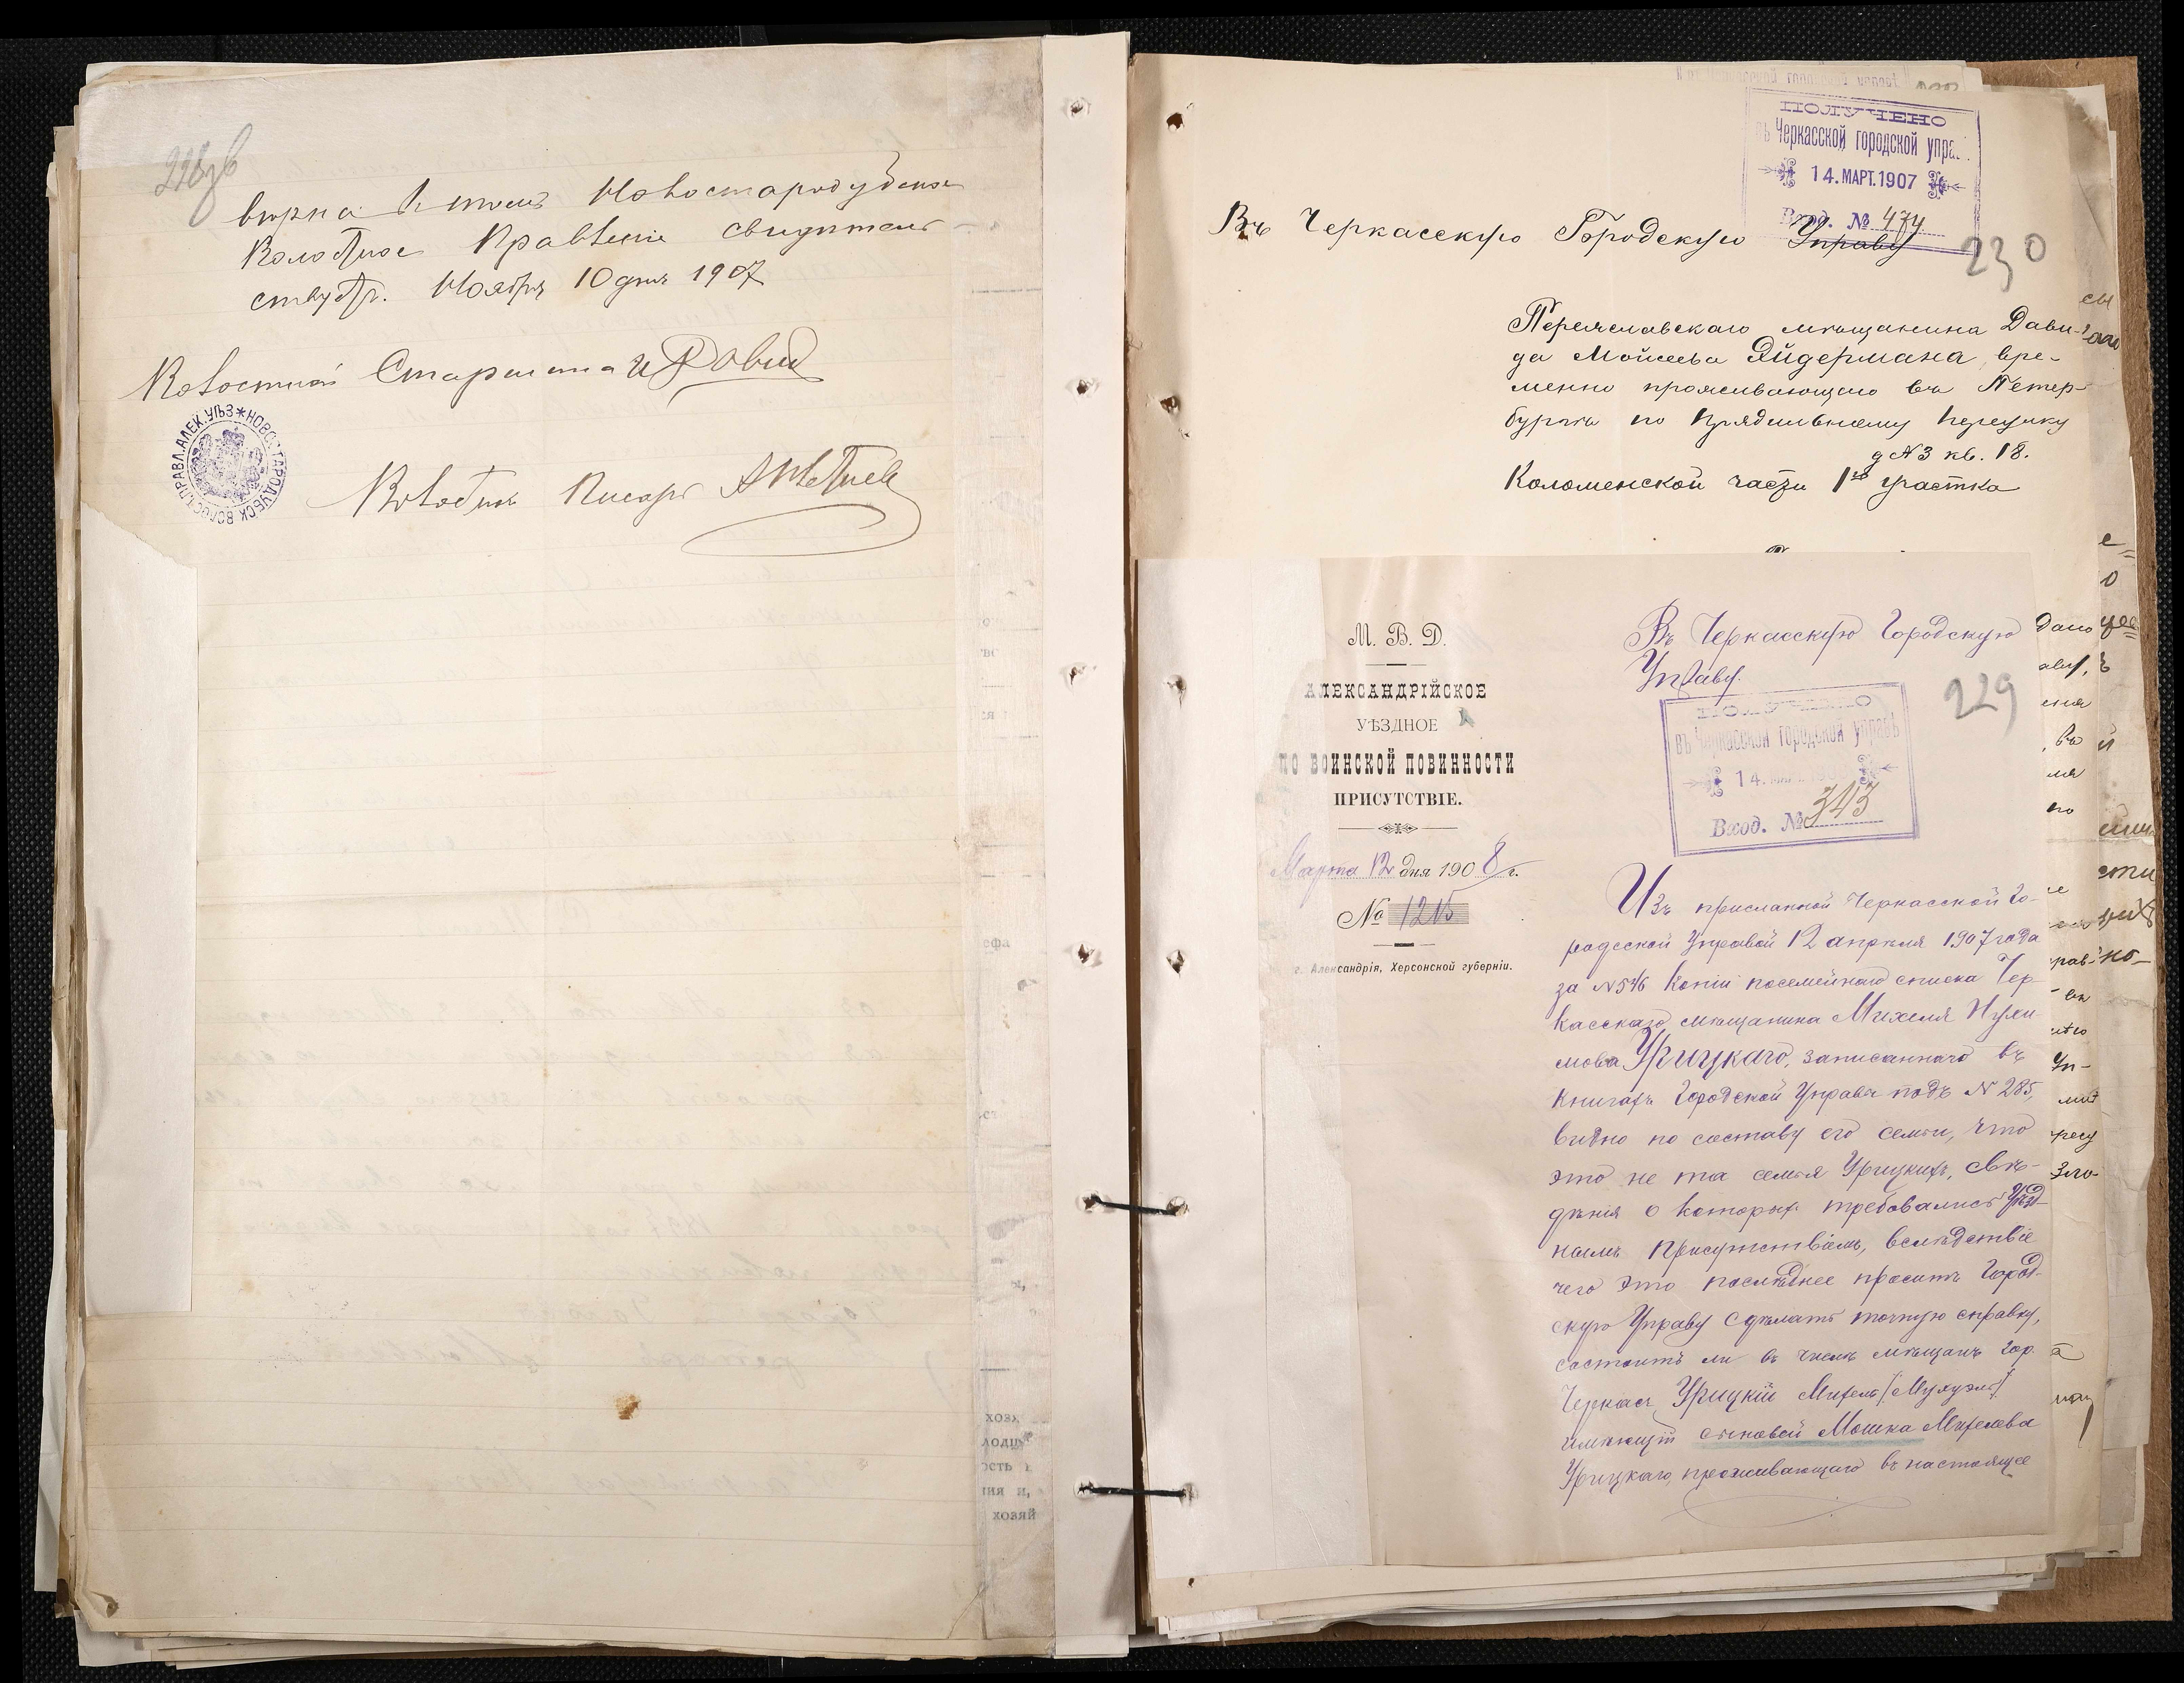 228 об
вѣрна в томъ Новостародубское
Волостное Правленіе свидѣтель-
ствуетъ. Ноября 10 дня 1907
Волостной Старшина
НОВОСТАРОДУБСК. ВОЛОСТ. ПРАВЛ. АЛЕК. УѢЗ
Волостной Писарь
ПОЛУЧЕНО
въ Черкасской городской упра
14. МАРТ. 1907
Вход. № 474
Въ Черкасскую Городскую Управу
230
Переяславскаго мѣщанина Дави-
да Моисеева Эйдермана, вре-
менно проживающаго въ Петер-
бургѣ по Прядильному переулку
д № 3 кв. 18.
Коломенской части 1го участка
М. В. Д.
АЛЕКСАНДРІЙСКОЕ
УѢЗДНОЕ
ПО ВОИНСКОЙ ПОВИННОСТИ
ПРИСУТСТВІЕ.
Марта 12 дня 1908 г.
№ 1215
г. Александрія, Херсонской губерніи.
Въ Черкасскую Городскую
Управу.
229
ПОЛУЧЕНО
въ Черкасской городской управѣ
14.
Вход. № 343
Изъ присланной Черкасской Го-
родской Управой 12 апрѣля 1907 года
за № 546 копіи посемейнаго списка Чер-
касскаго мѣщанина Михеля Нухи-
мова Урицкаго, записаннаго въ
книгахъ Городской Управы подъ № 285,
видно по составу его семьи, что
это не та семья Урицкихъ, свѣ-
дѣнія о которыхъ требовались Уѣзд-
нымъ Присутствіемъ, вслѣдствіе
чего это послѣднее проситъ Город-
скую Управу сдѣлать точную справку,
состоитъ ли въ числѣ мѣщанъ гор.
Черкасъ Урицкій Михель
имѣющій сыновей Мошка Михелева
Урицкаго, проживающаго въ настоящее